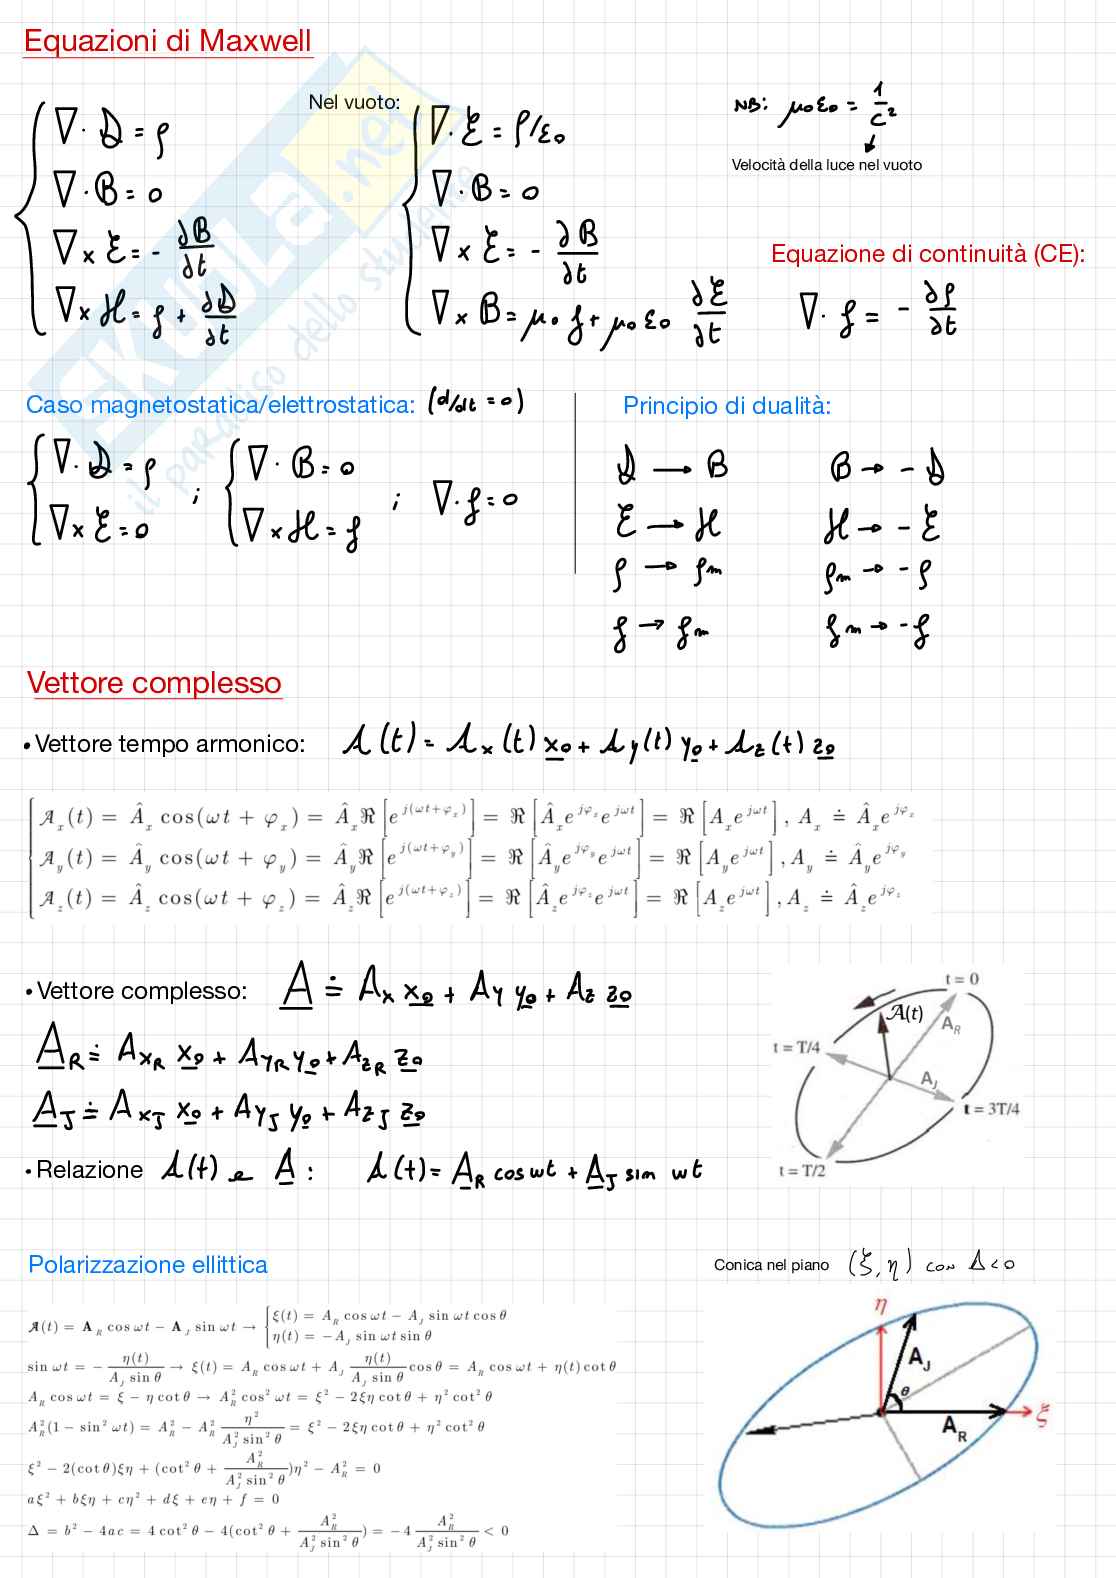 Equazioni di Maxwell
∇· D = ρ
∇· B = 0
∇× E = - ∂B/∂t
∇× H = J + ∂D/∂t
Nel vuoto:
∇· E = ρ/ε₀
∇· B = 0
∇× E = - ∂B/∂t
∇× B = μ₀ J + μ₀ ε₀ ∂E/∂t
NB: μ₀ε₀ = 1/c²
Velocità della luce nel vuoto
Equazione di continuità (CE):
∇· J = - ∂ρ/∂t
Caso magnetostatica/elettrostatica: (d/dt = 0)
∇· D = ρ
∇× E = 0 ;
∇· B = 0
∇× H = J ;
∇· J = 0
Principio di dualità:
D → B    B → - D
E → H    H → - E
ρ → ρm    ρm → - ρ
J → Jm    Jm → - J
SKUOLA.net
il paradiso dello studente
Vettore complesso
• Vettore tempo armonico: A(t) = Ax(t) x₀ + Ay(t) y₀ + Az(t) z₀
Ax(t) = Âx cos(ωt + φx) = Âx ℜ[e^{j(ωt+φx)}] = ℜ[Âx e^{jφx} e^{jωt}] = ℜ[Ax e^{jωt}], Ax ≐ Âx e^{jφx}
Ay(t) = Ây cos(ωt + φy) = Ây ℜ[e^{j(ωt+φy)}] = ℜ[Ây e^{jφy} e^{jωt}] = ℜ[Ay e^{jωt}], Ay ≐ Ây e^{jφy}
Az(t) = Âz cos(ωt + φz) = Âz ℜ[e^{j(ωt+φz)}] = ℜ[Âz e^{jφz} e^{jωt}] = ℜ[Az e^{jωt}], Az ≐ Âz e^{jφz}
• Vettore complesso: A ≐ Ax x₀ + Ay y₀ + Az z₀
A_R ≐ A_xR x₀ + A_yR y₀ + A_zR z₀
A_J ≐ A_xJ x₀ + A_yJ y₀ + A_zJ z₀
• Relazione A(t) e A : A(t) = A_R cos ωt + A_J sin ωt
t = 0
A(t)
A_R
t = T/4
A_J
t = 3T/4
t = T/2
Polarizzazione ellittica
A(t) = A_R cos ωt − A_J sin ωt → { ξ(t) = A_R cos ωt − A_J sin ωt cos θ
η(t) = −A_J sin ωt sin θ
sin ωt = − η(t)/(A_J sin θ) → ξ(t) = A_R cos ωt + A_J η(t)/(A_J sin θ) cos θ = A_R cos ωt + η(t) cot θ
A_R cos ωt = ξ − η cot θ → A_R² cos² ωt = ξ² − 2ξη cot θ + η² cot² θ
A_R²(1 − sin² ωt) = A_R² − A_R² η²/(A_J² sin² θ) = ξ² − 2ξη cot θ + η² cot² θ
ξ² − 2(cot θ)ξη + (cot² θ + A_R²/(A_J² sin² θ))η² − A_R² = 0
aξ² + bξη + cη² + dξ + eη + f = 0
Δ = b² − 4ac = 4 cot² θ − 4(cot² θ + A_R²/(A_J² sin² θ)) = −4 A_R²/(A_J² sin² θ) < 0
Conica nel piano (ξ, η) con Δ < 0
η
A_J
θ
A_R
ξ